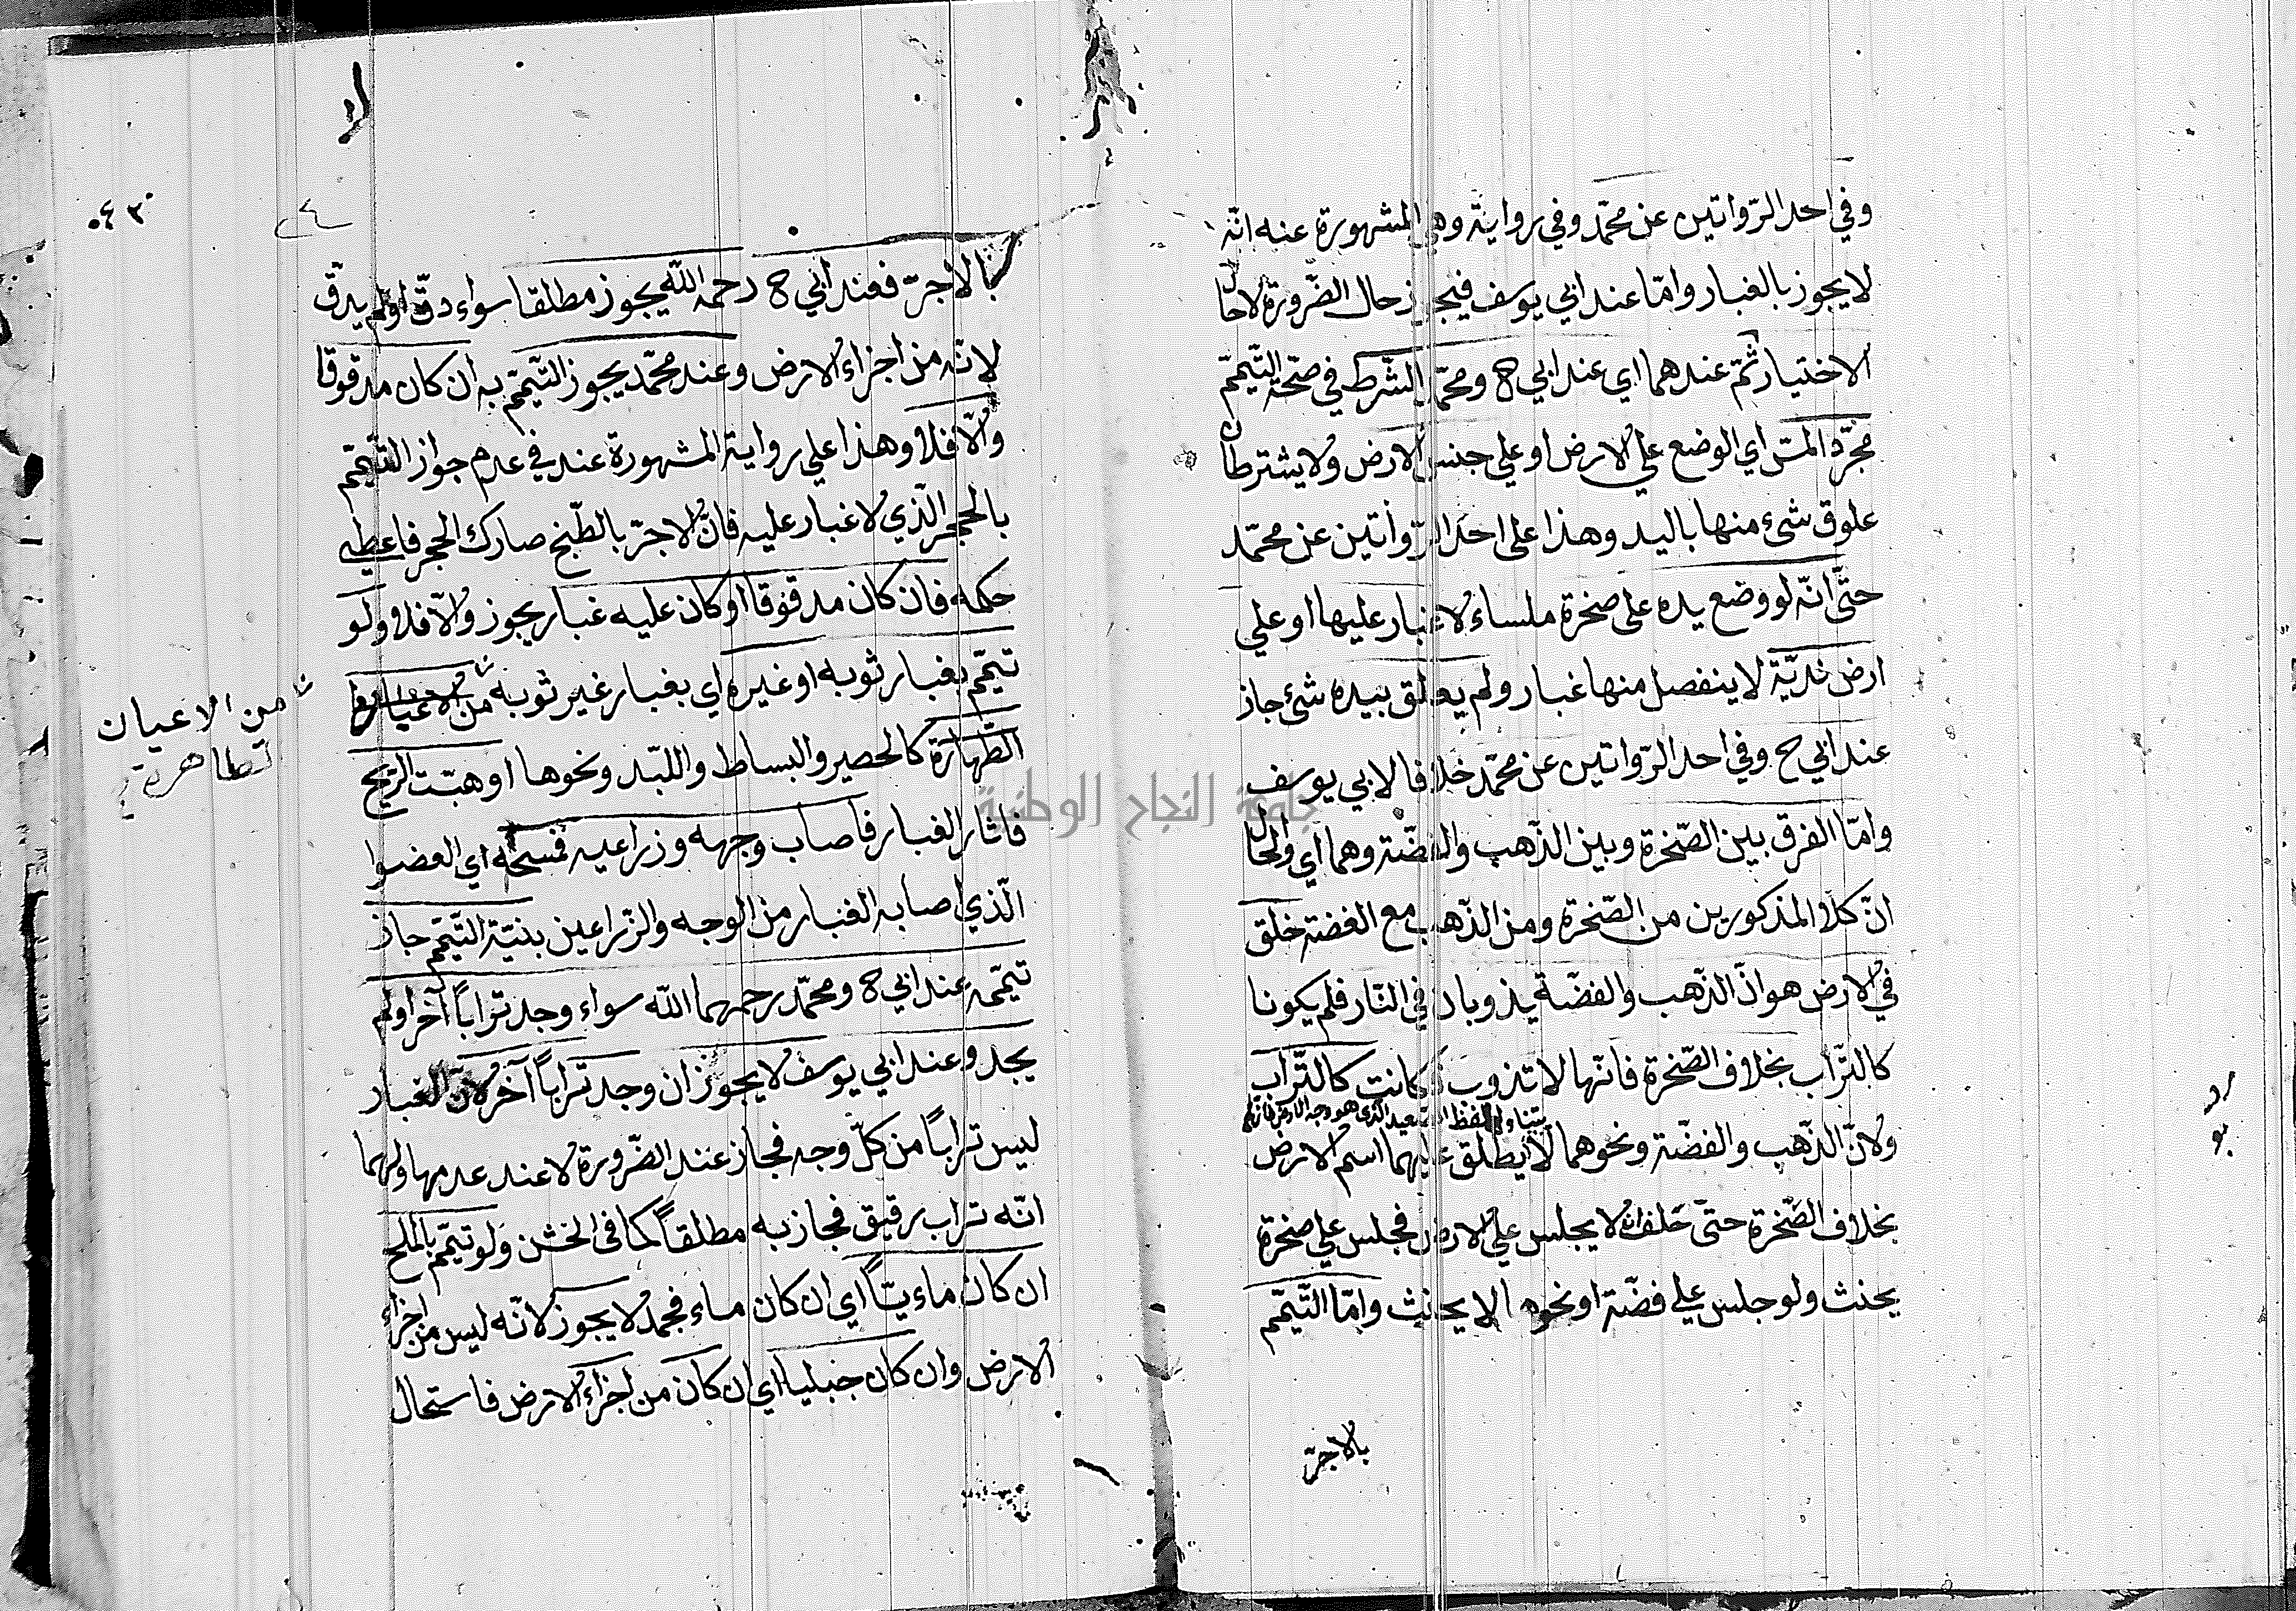 وفي احد الرّواتين عن محمّد وفي رواية وهي المشهورة عنه انّه
لا يجوز بالغبار وامّا عند ابي يوسف فيجوز حال الضّرورة لا حال
الاختيار ثمّ عندهما اي عند ابي ح ومحمّد الشّرط في صحّة التّيمّم
مجرّد المسّ اي الوضع علي الارض او علي جنس الارض ولا يشترطان
علوق شئ منها باليد وهذا على احد الرّواتين عن محمّد
حتّى انّه لو وضع يده على صخرة ملساء لا غبار عليها او علي
ارض نديّة لا ينفصل منها غبار ولم يعلق بيده شئ جاز
عند ابي ح وفي احد الرّواتين عن محمّد خلافا لابي يوسف
وامّا الفرق بين الصّخرة وبين الذّهب والفضّة وهما اي والحال
انّ كلّا المذكورين من الصّخرة ومن الذّهب مع الفضة خلق
في الارض هو انّ الذّهب والفضّة يذوبان في النّار فلم يكونا
كالتّراب بخلاف الصّخرة فانّها لا تذوب فكانت كالتّراب
يتناولهما لفظ الصّعيد الذي هو وجه الارض
ولانّ الذّهب والفضّة ونحوهما لا يطلق عليهما اسم الارض
بخلاف الصّخرة حتّى حلف انه لا يجلس علي الارض فجلس علي صخرة
يحنث ولو جلس علي فضّة او نحوها لا يحنث وامّا التّيمّم
بالاجرّ
لا
٠٤٣
٤
بالاجرّ فعند ابي ح رحمه الله يجوز مطلقا سواء دقّ او لم يدقّ
لانّه من اجزاء الارض وعند محمّد يجوز التّيمّم به ان كان مدقوقا
والّا فلا وهذا علي رواية المشهورة عند في عدم جواز التّيمّم
بالحجر الّذي لا غبار عليه فانّ الاجرّ بالطّبخ صار كالحجر فاعطي
حكمه فان كان مدقوقا او كان عليه غبار يجوز والّا فلا ولو
تيمّم بغبار ثوبه او غيره اي بغبار غير ثوبه من الاعيان
من الاعيان
الطاهرة
الطّهارة كالحصير والبساط واللبّد ونحوها او هبّت الرّيح
فاثار الغبار فاصاب وجهه وزراعيه فمسحه اي العضوا
الّذي اصابه الغبار من الوجه والزّراعين بنيّة التّيمّم جاز
تيمّمه عند ابي ح ومحمّد رحمهما الله سواء وجد تراباً آخر او لم
يجد وعند ابي يوسف لا يجوز ان وجد تراباً آخر لانّ الغبار
ليس تراباً من كلّ وجه فجاز عند الضّرورة لا عند عدمها ولهما
انّه تراب رقيق فجاز به مطلقاً كما في الخشن ولو تيمّم بالملح
ان كان مائيّاً اي ان كان ماء فجمد لا يجوز لانّه ليس من اجزاء
الارض وان كان جبليا اي ان كان من اجزاء الارض فاستحال
جامعة النجاح الوطنية